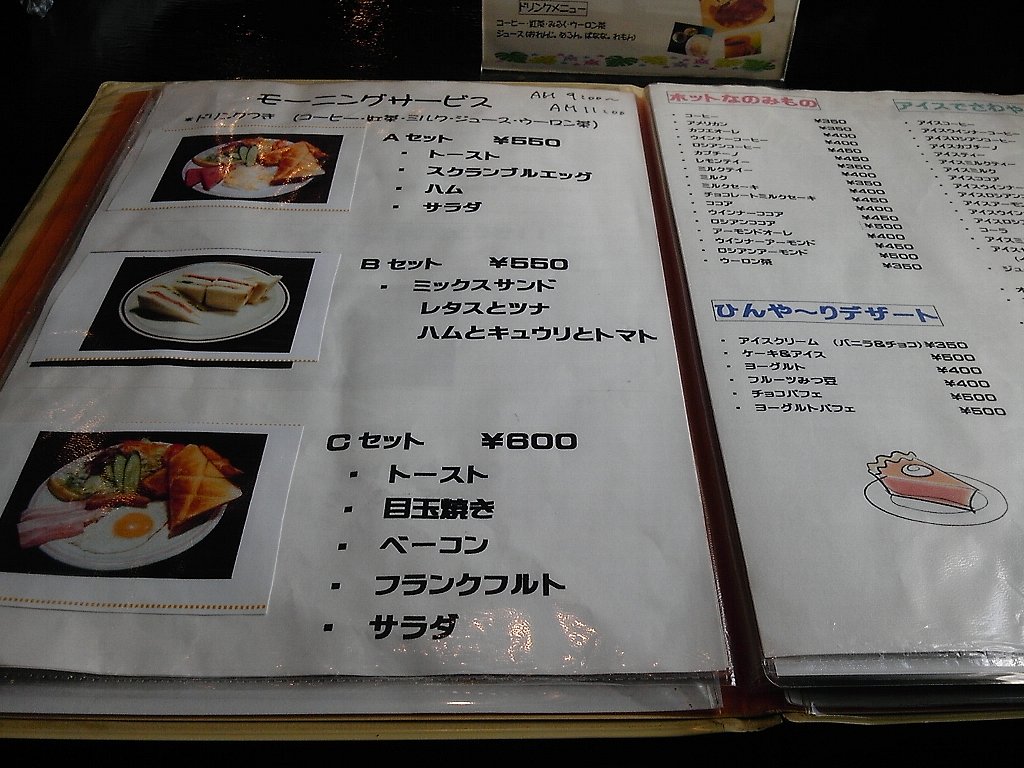 ドリンクメニュー
コーヒー・紅茶・みるく・ウーロン茶
ジュース(おれんじ、めろん、ばなな、れもん)
モーニングサービス AM 9:00~
AM 11:00
*ドリンクつき (コーヒー・紅茶・ミルク・ジュース・ウーロン茶)
Aセット ¥550
・ トースト
・ スクランブルエッグ
・ ハム
・ サラダ
Bセット ¥550
・ ミックスサンド
レタスとツナ
ハムとキュウリとトマト
Cセット ¥600
・ トースト
・ 目玉焼き
・ ベーコン
・ フランクフルト
・ サラダ
ホットなのみもの
・ コーヒー ¥350
・ アメリカン ¥350
・ カフェオーレ ¥400
・ ウインナーコーヒー ¥400
・ ロシアンコーヒー ¥450
・ カプチーノ ¥450
・ レモンティー ¥350
・ ミルクティー ¥400
・ ミルク ¥350
・ ミルクセーキ ¥400
・ チョコレートミルクセーキ ¥450
・ ココア ¥400
・ ウインナーココア ¥450
・ ロシアンココア ¥500
・ アーモンドオーレ ¥400
・ ウインナーアーモンド ¥450
・ ロシアンアーモンド ¥500
・ ウーロン茶 ¥350
ひんや~りデザート
・ アイスクリーム (バニラ&チョコ) ¥350
・ ケーキ&アイス ¥500
・ ヨーグルト ¥400
・ フルーツみつ豆 ¥400
・ チョコパフェ ¥500
・ ヨーグルトパフェ ¥500
アイスでさわや
・ アイスコーヒー
・ アイスウインナーコーヒー
・ アイスロシアンコーヒー
・ アイスカプチー
・ アイスティー
・ アイスミルクティー
・ アイスミルク
・ アイスココア
・ アイスウインナー
・ アイスロシアン
・ アイスアーモ
・ アイスウイン
・ アイスロシ
・ コーラ
・ アイスミ
・ アイス
・ ジュ